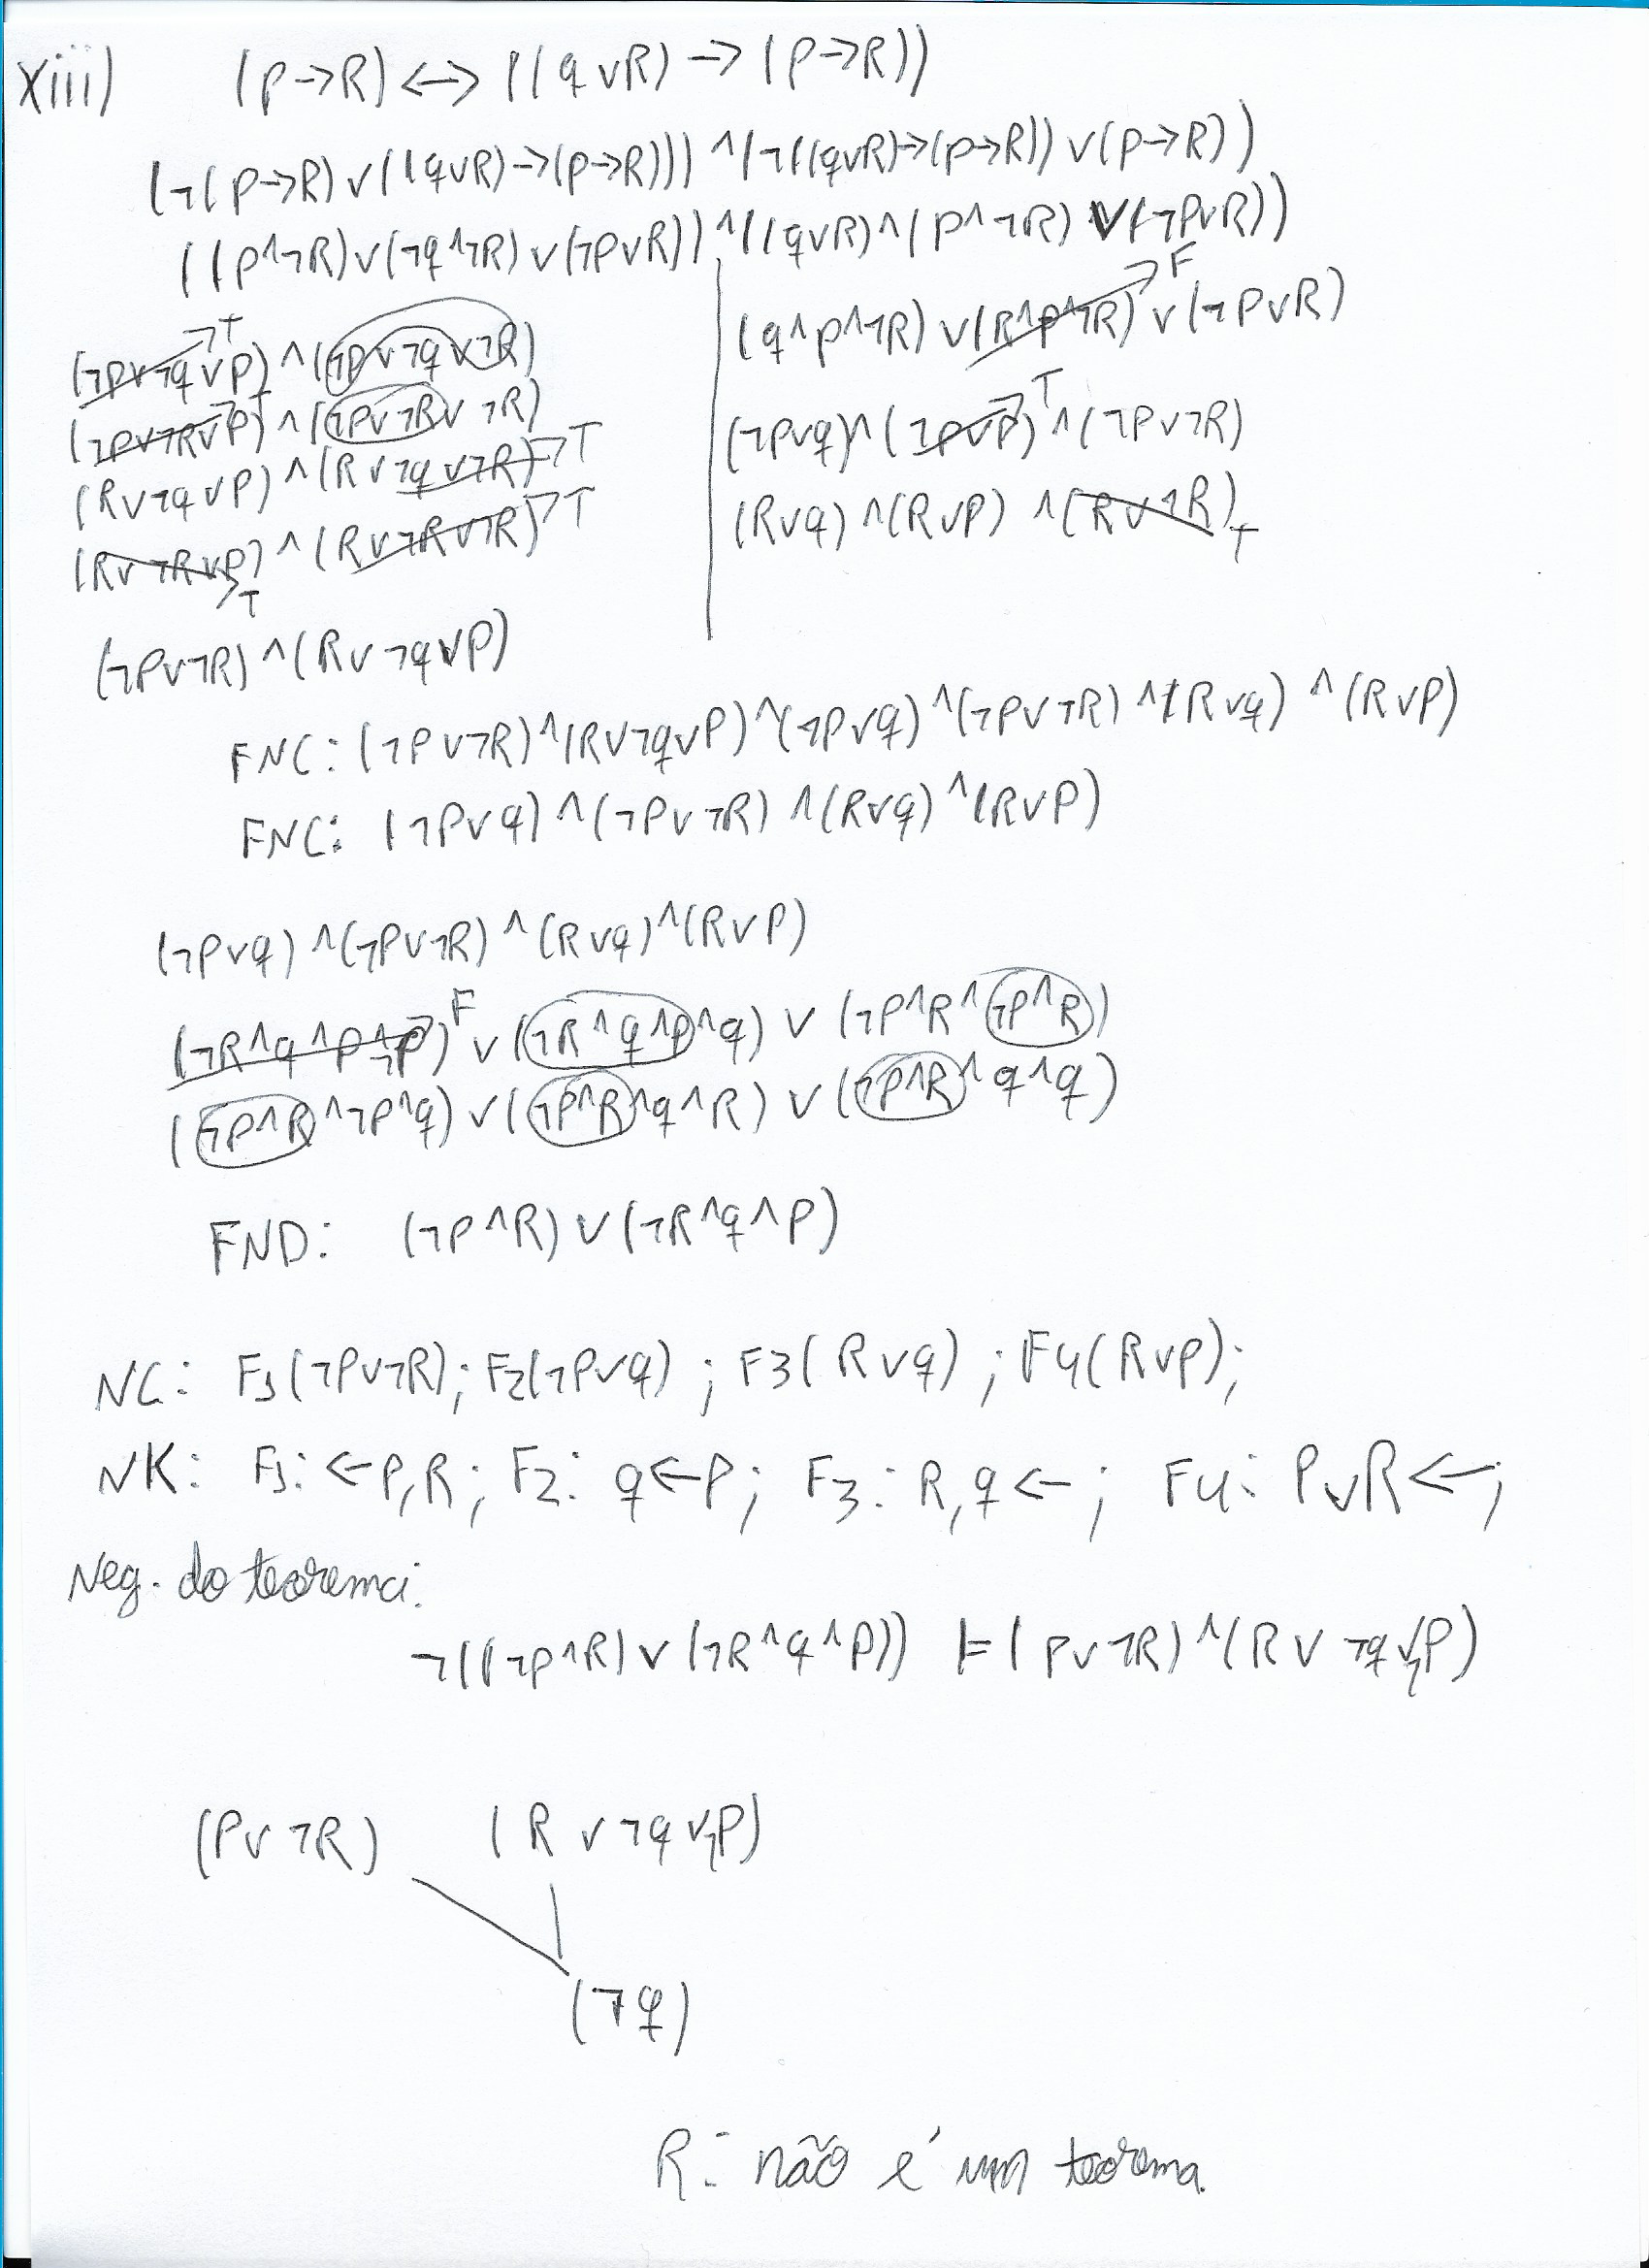 xiii) (p→R)↔((q∨R)→(p→R))
(¬(p→R)∨((q∨R)→(p→R)))^(¬((q∨R)→(p→R))∨(p→R))
((p^¬R)∨(¬q^¬R)∨(¬p∨R))^((q∨R)^(p^¬R)∨(¬p∨R))
(¬p∨¬q∨p)→T^(¬p∨¬q∨¬R)
(¬p∨¬R∨p)→T^(¬p∨¬R∨¬R)
(R∨¬q∨p)^(R∨¬q∨¬R)→T
(R∨¬R∨p)→T^(R∨¬R∨¬R)→T
(¬p∨¬R)^(R∨¬q∨p)
(q^p^¬R)∨(R^p^¬R)→F∨(¬p∨R)
(¬p∨q)^(¬p∨p)→T^(¬p∨¬R)
(R∨q)^(R∨p)^(R∨¬R)T
FNC: (¬p∨¬R)^(R∨¬q∨p)^(¬p∨q)^(¬p∨¬R)^(R∨q)^(R∨p)
FNC: (¬p∨q)^(¬p∨¬R)^(R∨q)^(R∨p)
(¬p∨q)^(¬p∨¬R)^(R∨q)^(R∨p)
(¬R^q^p^¬p)→F∨(¬R^q^p^q)∨(¬p^R^¬p^R)
(¬p^R^¬p^q)∨(¬p^R^q^R)∨(¬p^R^q^q)
FND: (¬p^R)∨(¬R^q^p)
NC: F1(¬p∨¬R); F2(¬p∨q); F3(R∨q); F4(R∨p);
NK: F1: ←p,R; F2: q←p; F3: R,q←; F4: p∨R←;
Neg. do teorema:
¬((¬p^R)∨(¬R^q^p)) ⊨(p∨¬R)^(R∨¬q∨¬p)
(p∨¬R) (R∨¬q∨¬p)
(¬q)
R: não é um teorema.